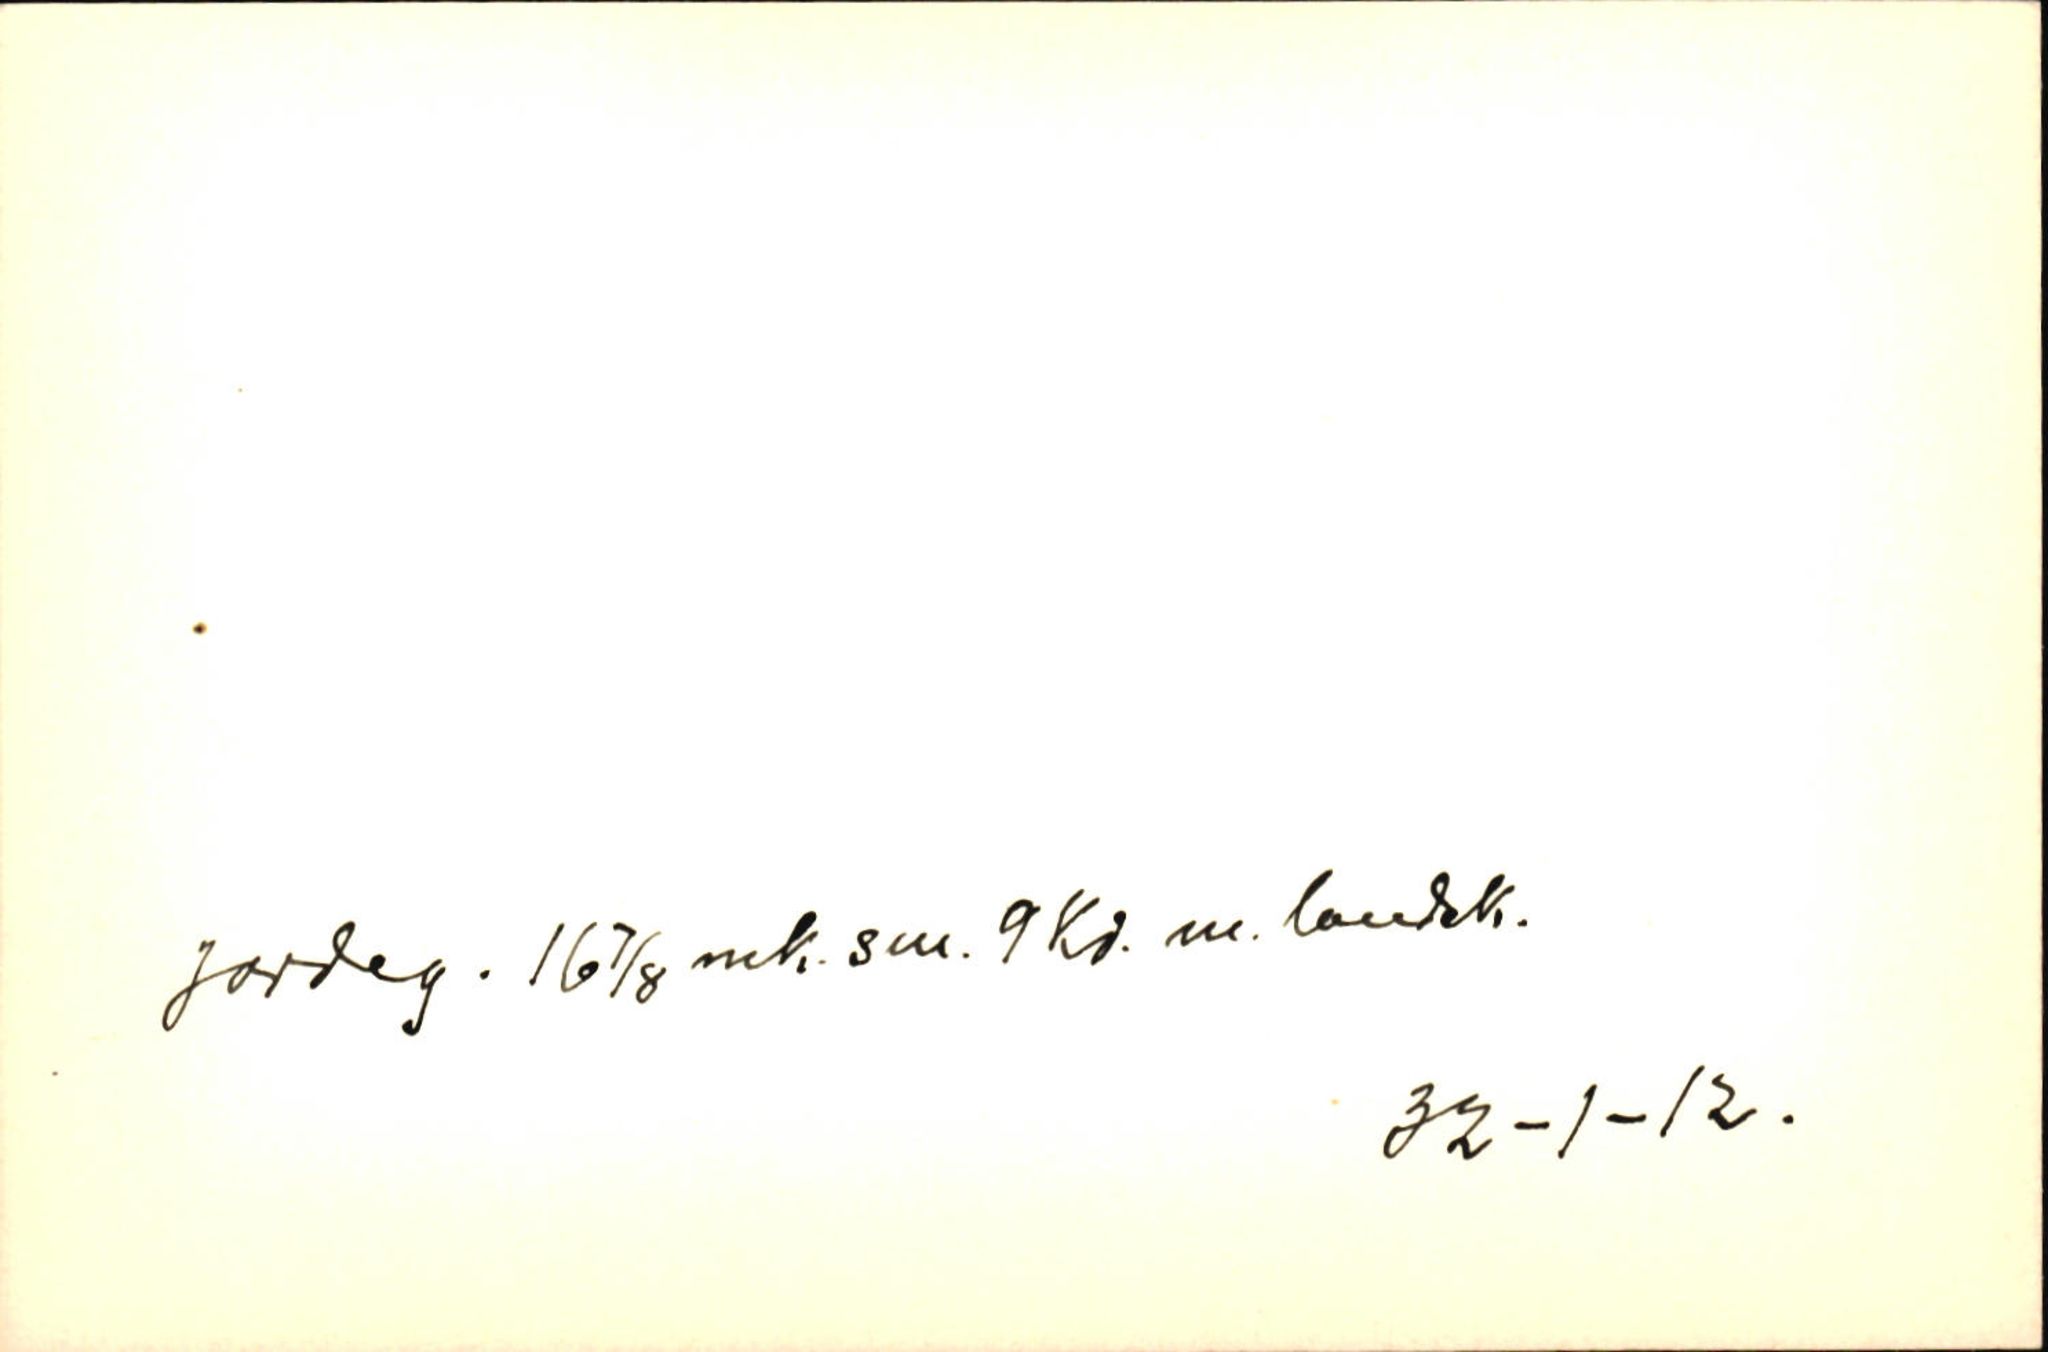 Jordeg. 16 7/8 mk. sm. 9 Kd. m. landsk.
32-1-12.